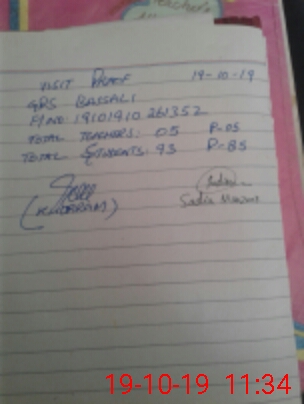 Teacher's
VISIT PROOF 19-10-19
GPS BASSALI
F/NO: 19101910 261352
TOTAL TEACHERS: 05 P-05
TOTAL STUDENTS: 93 P-85
Sadia
19-10-19 11:34